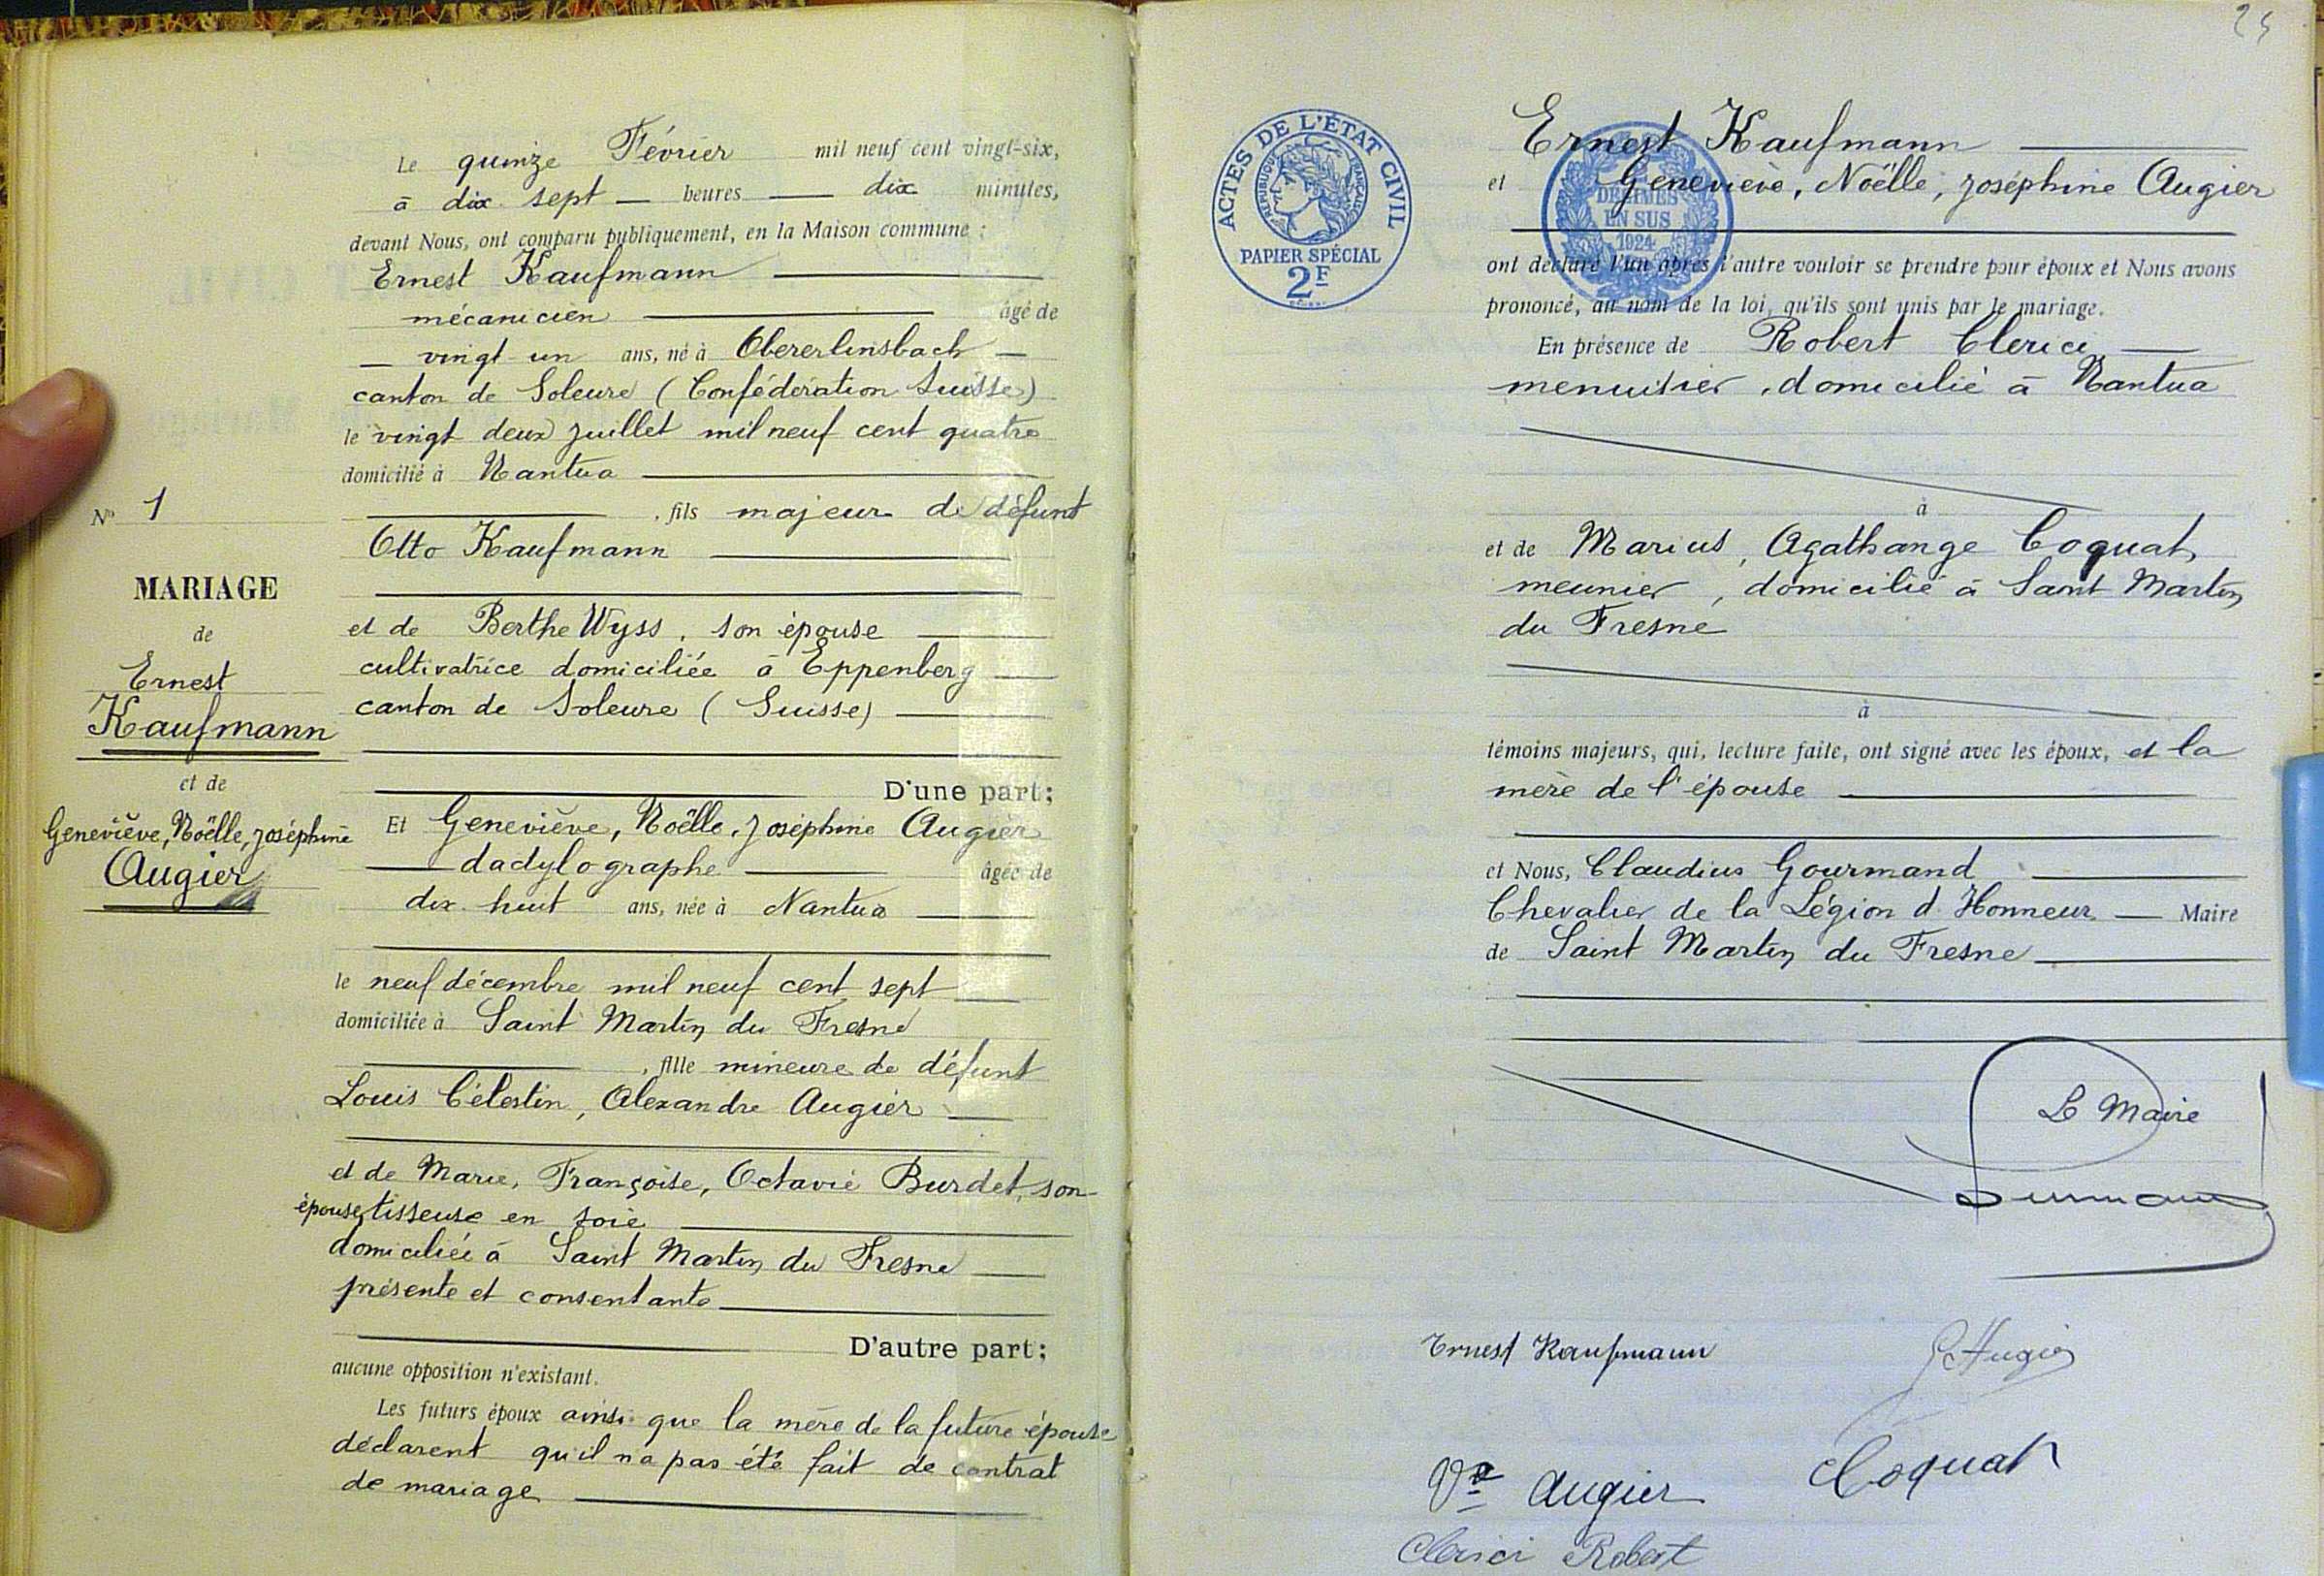 Le quinze Février mil neuf cent vingt-six,
à dix sept heures dix minutes,
devant Nous, ont comparu publiquement, en la Maison commune :
Ernest Kaufmann
mécanicien âgé de
vingt-un ans, né à Obererlinsbach
canton de Soleure (Confédération Suisse)
le vingt deux juillet mil neuf cent quatre
domicilié à Nantua
, fils majeur de défunt
Otto Kaufmann
et de Berthe Wyss, son épouse
cultivatrice domiciliée à Eppenberg
canton de Soleure (Suisse)
D'une part;
Et Geneviève, Noëlle, Joséphine Augier
dactylographe âgée de
dix-huit ans, née à Nantua
le neuf décembre mil neuf cent sept
domiciliée à Saint Martin du Fresne
, fille mineure de défunt
Louis Célestin, Alexandre Augier
et de Marie, Françoise, Octavie Burdet, son
épouse, tisseuse en soie
domiciliée à Saint Martin du Fresne
présente et consentante
D'autre part;
aucune opposition n'existant.
Les futurs époux ainsi que la mère de la future épouse
déclarent qu'il n'a pas été fait de contrat
de mariage
N° 1
MARIAGE
de
Ernest
Kaufmann
et de
Geneviève, Noëlle, Joséphine
Augier
25
ACTES DE L'ÉTAT CIVIL
RÉPUBLIQUE FRANÇAISE
PAPIER SPÉCIAL
2F
DÉCIMES
EN SUS
1924
Ernest Kaufmann
et Geneviève, Noëlle, Joséphine Augier
ont déclaré l'un après l'autre vouloir se prendre pour époux et Nous avons
prononcé, au nom de la loi, qu'ils sont unis par le mariage.
En présence de Robert Clerici
menuisier, domicilié à Nantua
à
et de Marius, Agathange Coquat,
meunier, domicilié à Saint Martin
du Fresne
à
témoins majeurs, qui, lecture faite, ont signé avec les époux, et la
mère de l'épouse
et Nous, Claudius Gourmand
Chevalier de la Légion d'Honneur Maire
de Saint Martin du Fresne
Le Maire
Ernest Kaufmann
G Augier
Ve Augier
Coquat
Clerici Robert